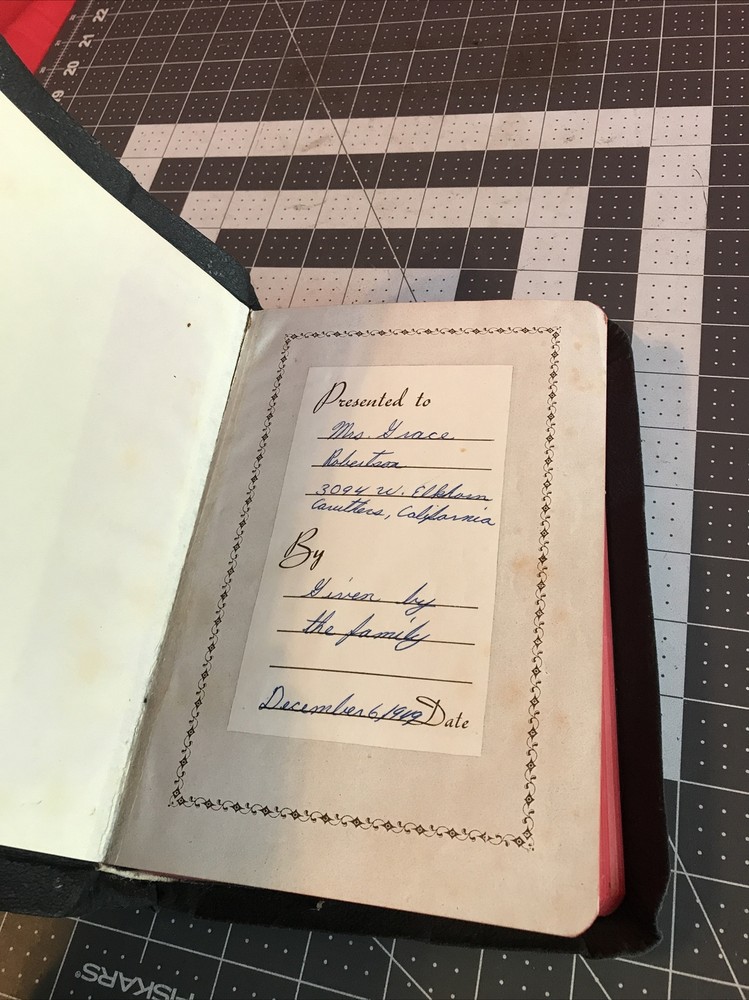 22
21
20
19
Presented to
Mrs. Grace
Robertson
3094 W. Elkhorn
Caruthers, California
By
Given by
the family
December 6, Date
FISKARS®